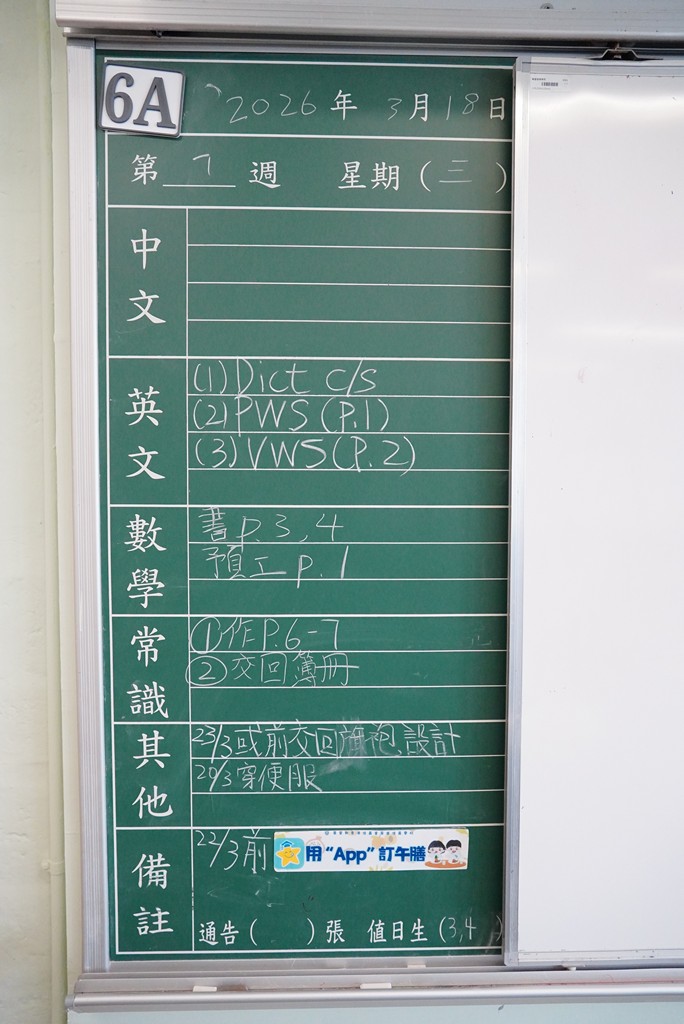 6A
2026年 3月18日
第 7 週 星期（三）
中文
英文
(1) Dict c/s
(2) PWS (P.1)
(3) VWS (P.2)
數學
書 p.3,4
預工 p.1
常識
① 作P.6-7
② 交回簿冊
其他
23/3或前交回旗袍設計
20/3穿便服
備註
22/3前
用“App”訂午膳
通告（ ）張 值日生（3,4 ）